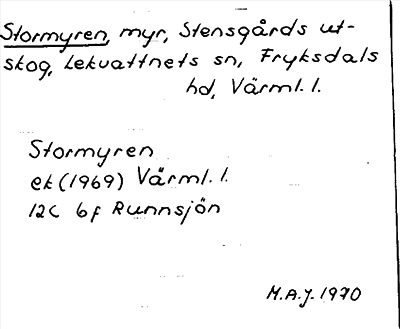 Stormyren, myr, Stensgårds ut-
skog, Lekvattnets sn, Fryksdals
hd, Värml. l.
Stormyren
ek (1969) Värml. l.
12C 6f Runnsjön
M.A.J. 1970